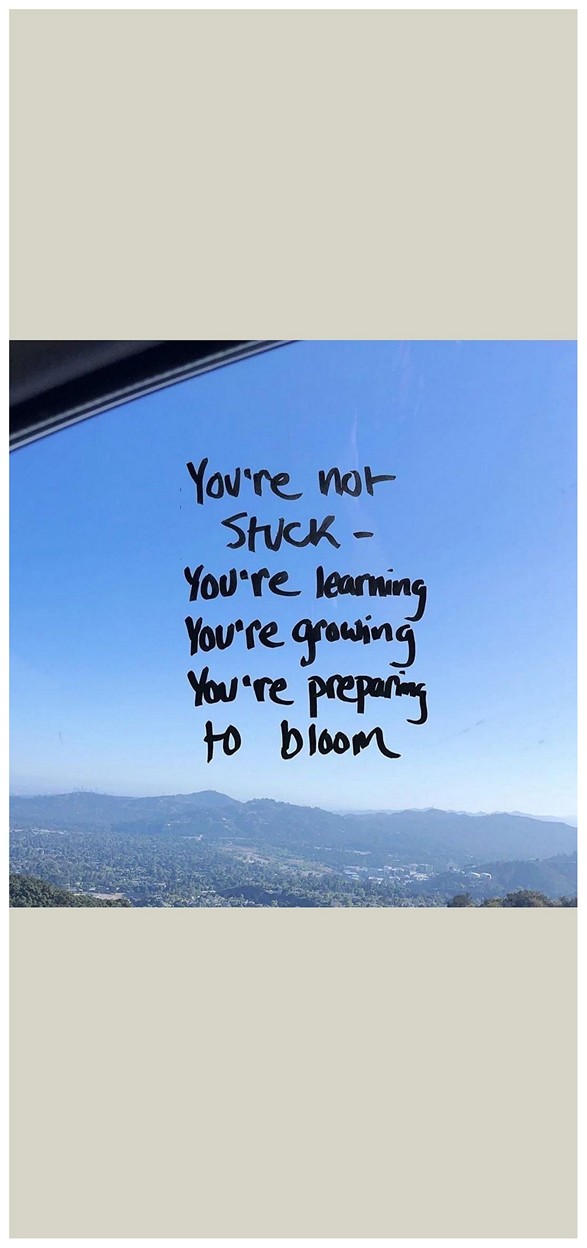 You're not
Stuck -
You're learning
You're growing
You're preparing
to bloom